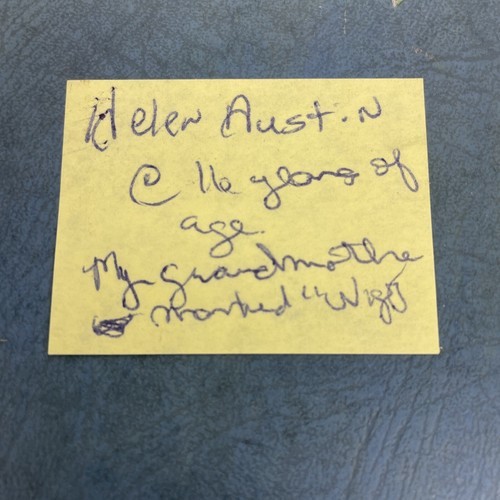 Helen Austin
@ 16 years of
age.
My grandmothe
marked "